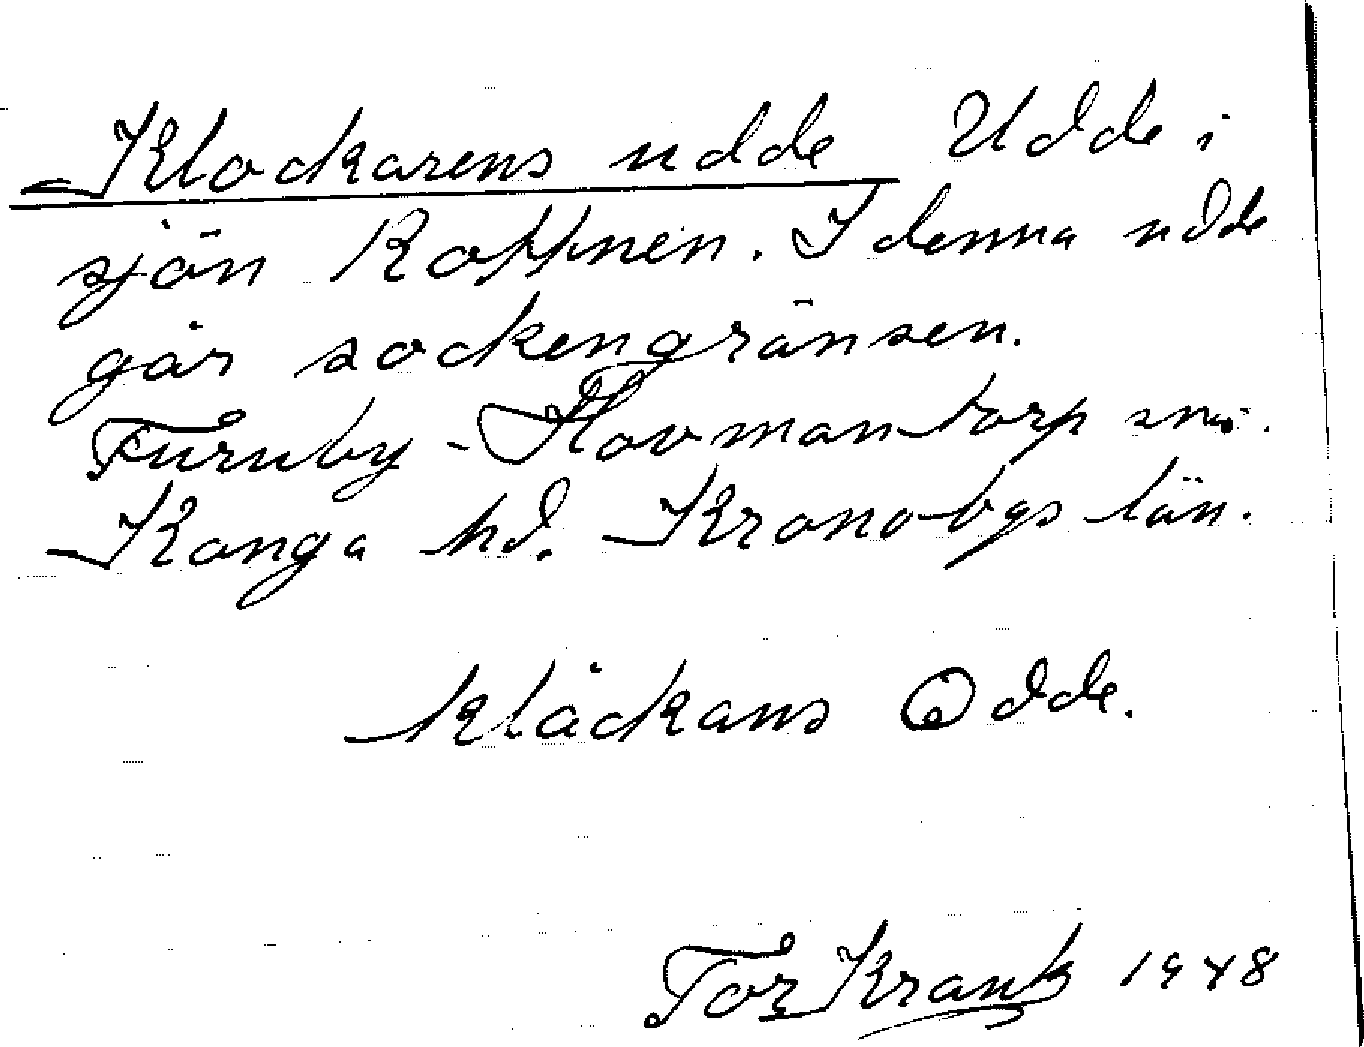 Klockarens udde Udde i
sjön Rottnen. I denna udde
går sockengränsen.
Furuby - Hovmantorp snr.
Konga hd. Kronobgs län.
klåckans Odde.
Tor Krank 1948